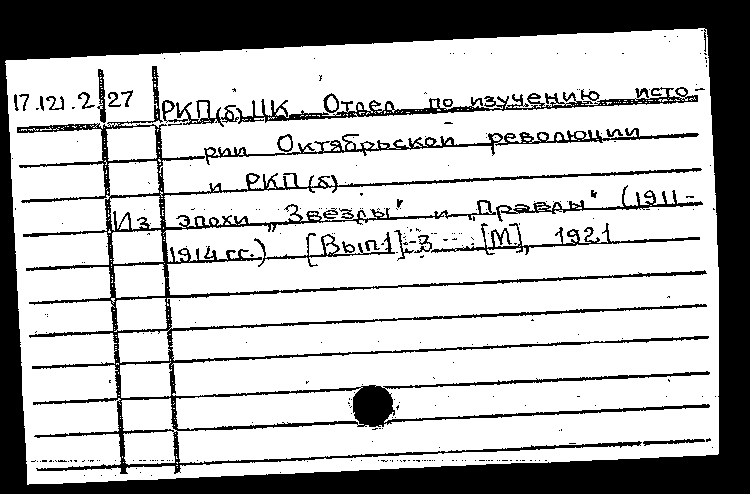 17.121.2 27 РКП(б) ЦК. Отдел по изучению исто-
рии Октябрьской революции
и РКП(б)
Из эпохи „Звезды" и „Правды" (1911-
1914 гг.) [Вып1]-3 [М], 1921